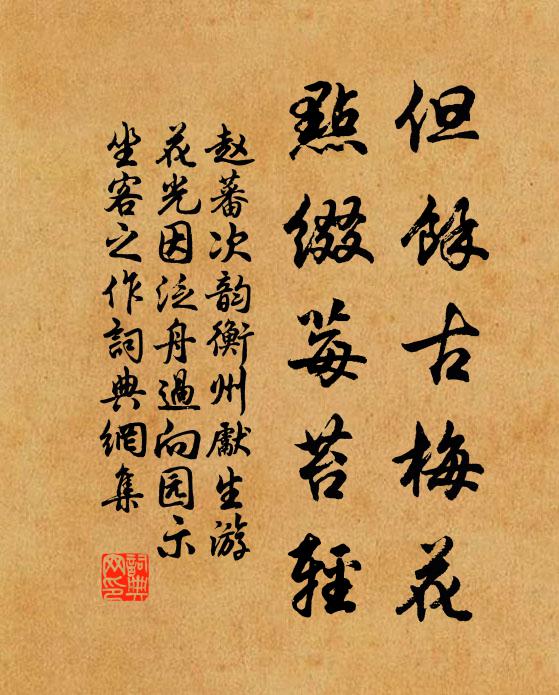 但餘古梅花
點綴莓苔輕
赵蕃次韵衡州獻生游
花光因泛舟過向园示
坐客之作詞典網集
詞典网印